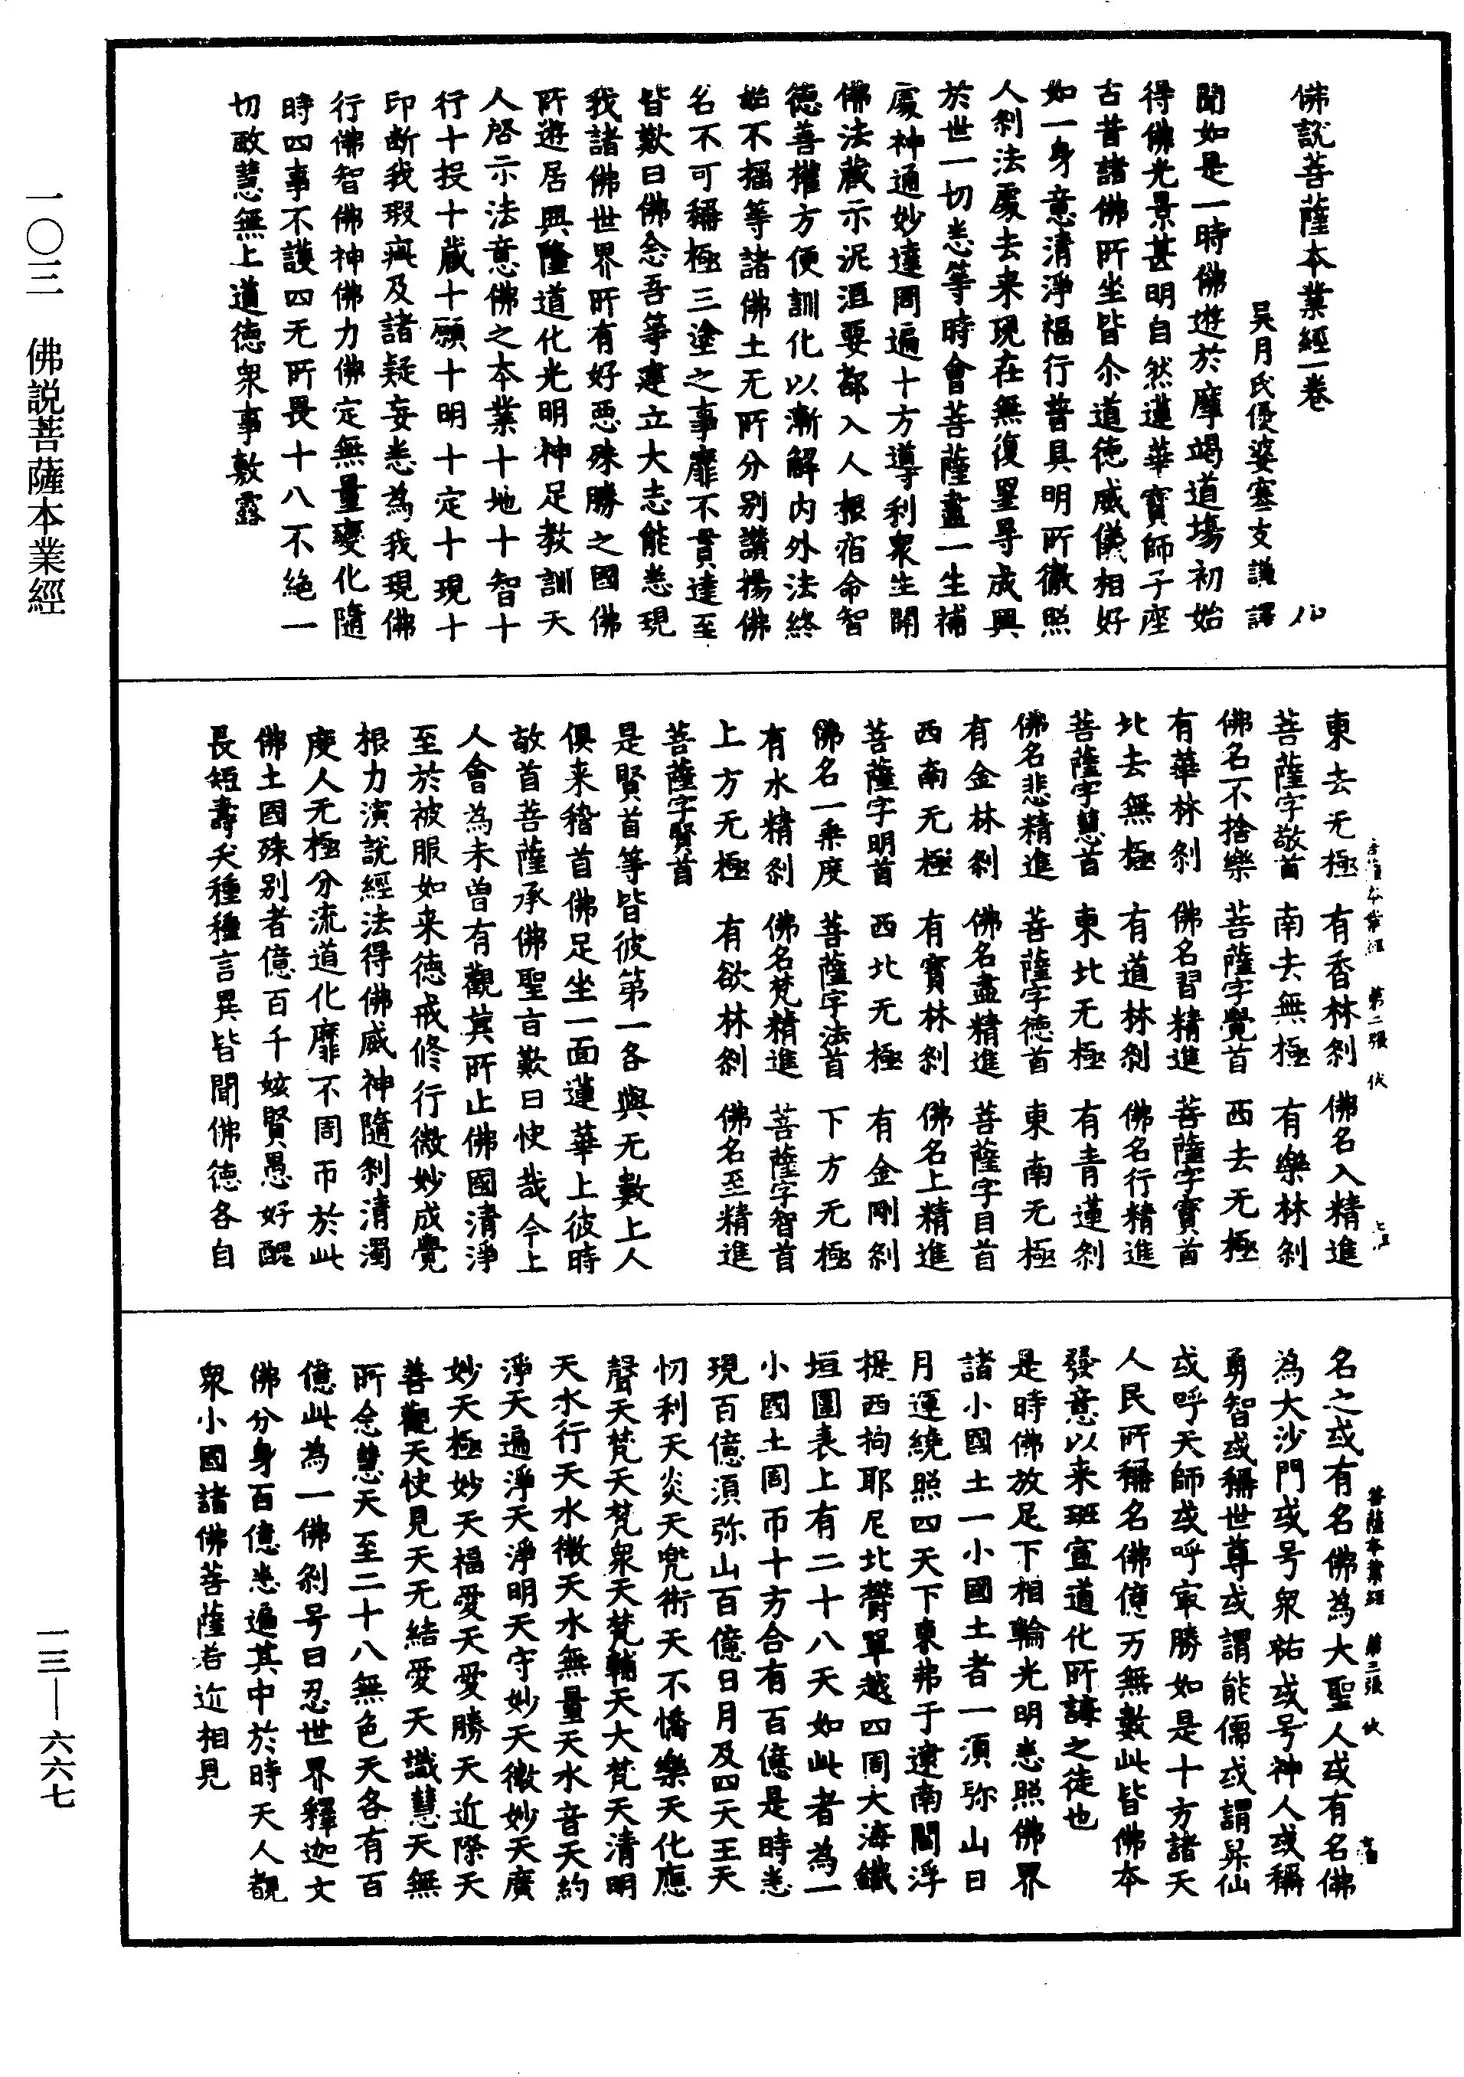 佛說菩薩本業經一卷
吳月氏優婆塞支謙譯
聞如是一時佛遊於摩竭道場初始
得佛光景甚明自然蓮華寶師子座
古昔諸佛所坐皆尒道德威儀相好
如一身意清淨福行普具明所徹照
人剎法處去来現在無復罣㝵成興
於世一切悉等時會菩薩盡一生補
處神通妙達周遍十方導利衆生開
佛法藏示泥洹要都入人根宿命智
德善權方便訓化以漸解內外法終
始不摇等諸佛土无所分別讚揚佛
名不可稱極三塗之事靡不貫達至
皆歎曰佛念吾等建立大志能悉現
我諸佛世界所有好惡殊勝之國佛
所遊居興隆道化光明神足教訓天
人啓示法意佛之本業十地十智十
行十投十藏十願十明十定十現十
印斷我瑕疵及諸疑妄悉為我現佛
行佛智佛神佛力佛定無量變化隨
時四事不護四无所畏十八不絕一
切敏慧無上道德衆事敷露
東去无極 有香林剎 佛名入精進
菩薩字敬首 南去無極 有樂林剎
佛名不捨樂 菩薩字覺首 西去无極
有華林剎 佛名習精進 菩薩字寶首
北去無極 有道林剎 佛名行精進
菩薩字慧首 東北无極 有青蓮剎
佛名悲精進 菩薩字德首 東南无極
有金林剎 佛名盡精進 菩薩字目首
西南无極 有寶林剎 佛名上精進
菩薩字明首 西北无極 有金剛剎
佛名一乘度 菩薩字法首 下方无極
有水精剎 佛名梵精進 菩薩字智首
上方无極 有欲林剎 佛名至精進
菩薩字賢首
是賢首等皆彼第一各與无數上人
俱来稽首佛足坐一面蓮華上彼時
敬首菩薩承佛聖旨歎曰快哉今上
人會為未曽有觀其所止佛國清淨
至於被服如来德戒修行微妙成覺
根力演說經法得佛威神隨剎清濁
度人无極分流道化靡不周帀於此
佛土國殊别者億百千姟賢愚好醜
長短壽夭種種言異皆聞佛德各自
菩薩本業經 第二張 伏
名之或有名佛為大聖人或有名佛
為大沙門或号衆祐或号神人或稱
勇智或稱世尊或謂能儒或謂昇仙
或呼天師或呼㝡勝如是十方諸天
人民所稱名佛億万無數此皆佛本
發意以来班宣道化所誨之徒也
是時佛放足下相輪光明悉照佛界
諸小國土一小國土者一須弥山日
月運繞照四天下東弗于逮南閻浮
提西拘耶尼北欝單越四周大海鐵
垣圍表上有二十八天如此者為一
小國土周帀十方合有百億是時悉
現百億須弥山百億日月及四天王天
忉利天炎天兜術天不憍樂天化應
聲天梵天梵衆天梵輔天大梵天清明
天水行天水微天水無量天水音天約
淨天遍淨天淨明天守妙天微妙天廣
妙天極妙天福愛天愛勝天近際天
善觀天快見天无結愛天識慧天無
所念慧天至二十八無色天各有百
億此為一佛剎号曰忍世界釋迦文
佛分身百億悉遍其中於時天人覩
衆小國諸佛菩薩者近相見
菩薩本業經 第三張 伏
一〇三 佛説菩薩本業經
一三—六六七